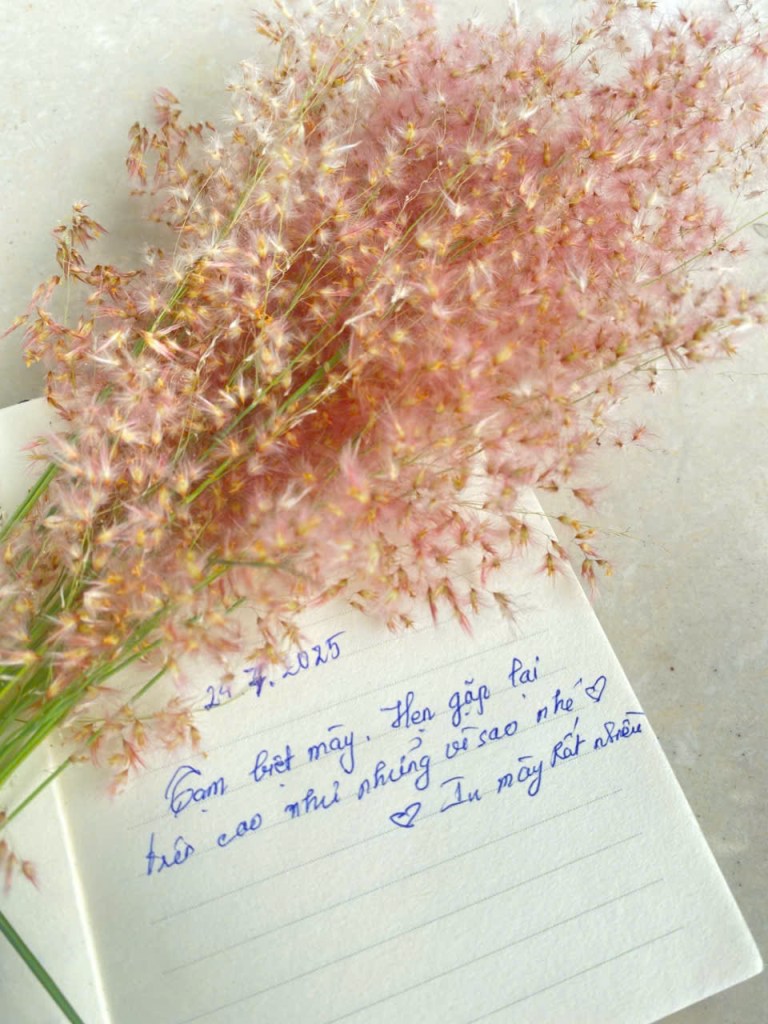 24.7.2025
Tạm biệt mày. Hẹn gặp lại
trên cao như những vì sao nhé ♡
♡ Iu mày rất nhiều